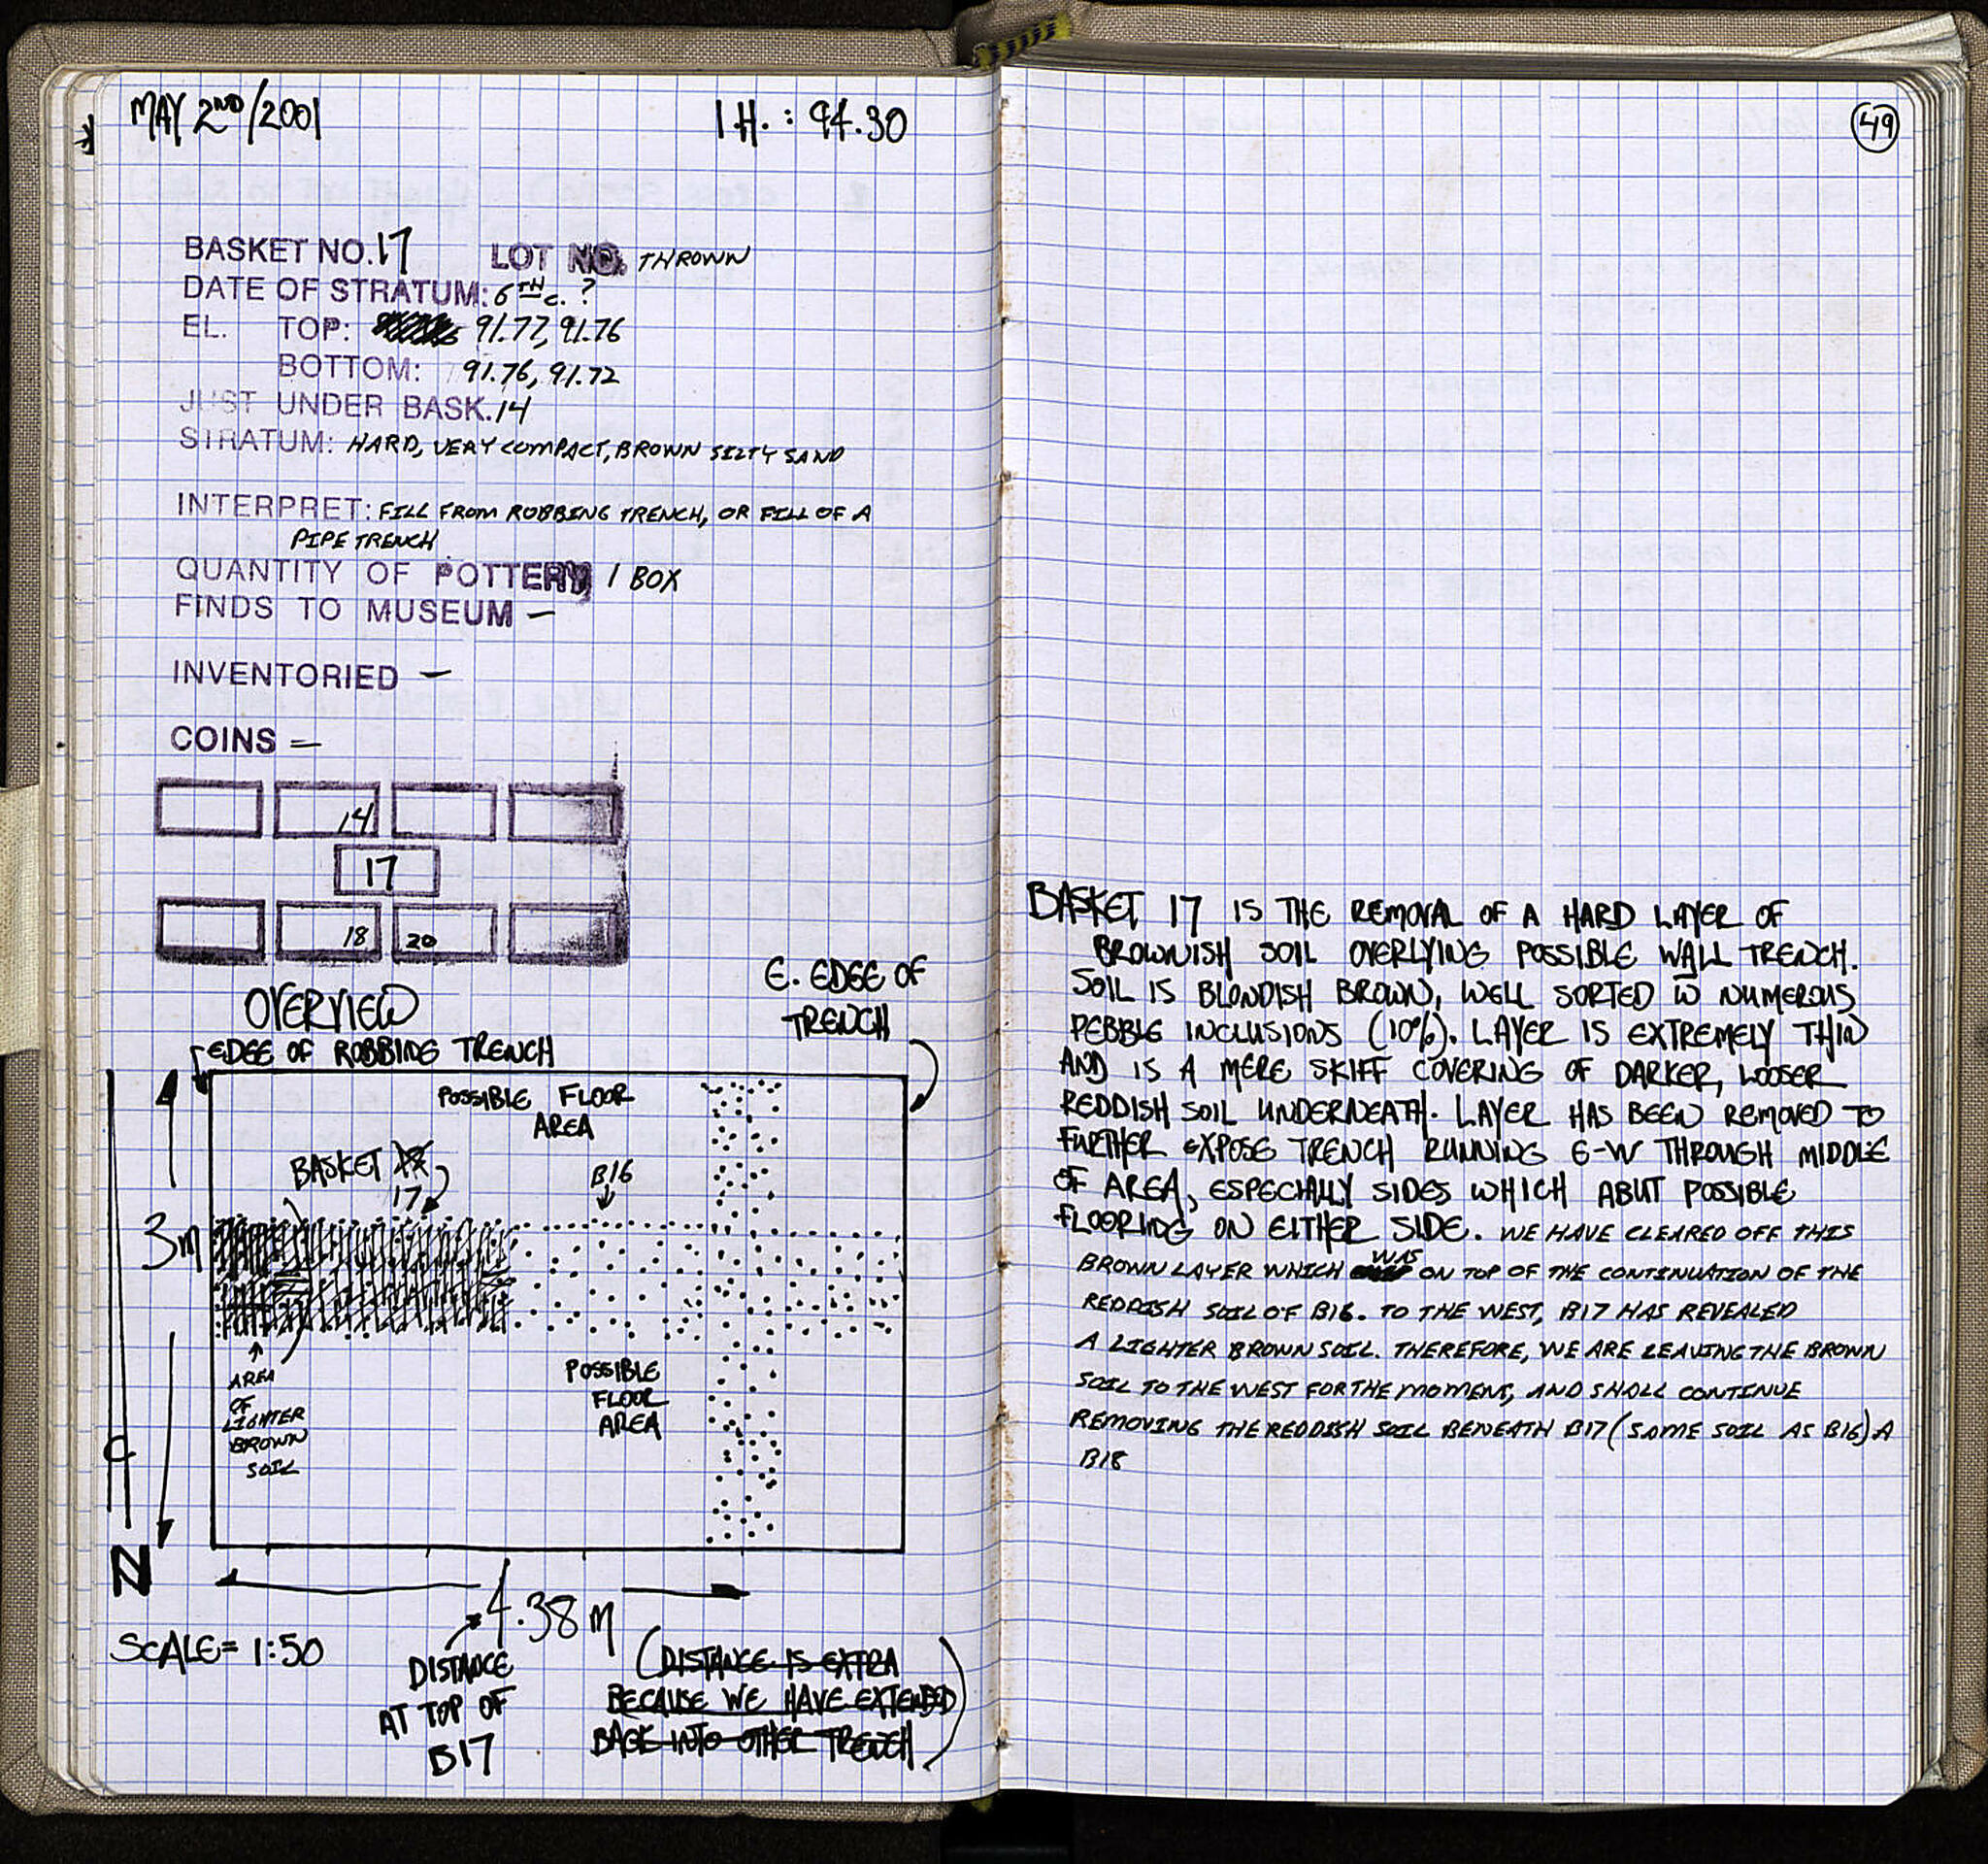 MAY 2ND/2001
I.H. : 94.30
BASKET NO. 17 LOT NO. THROWN
DATE OF STRATUM: 6TH c. ?
EL. TOP: 91.77, 91.76
BOTTOM: 91.76, 91.72
JUST UNDER BASK. 14
STRATUM: HARD, VERY COMPACT, BROWN SILTY SAND
INTERPRET: FILL FROM ROBBING TRENCH, OR FILL OF A
PIPE TRENCH
QUANTITY OF POTTERY 1 BOX
FINDS TO MUSEUM —
INVENTORIED —
COINS —
14
17
18 20
OVERVIEW
E. EDGE OF
TRENCH
EDGE OF ROBBING TRENCH
POSSIBLE FLOOR
AREA
BASKET
17
B16
3m
AREA
OF
LIGHTER
BROWN
SOIL
POSSIBLE
FLOOR
AREA
N
4.38 m
SCALE = 1:50
DISTANCE
AT TOP OF
B17
(DISTANCE IS EXTRA
BECAUSE WE HAVE EXTENDED
BACK INTO OTHER TRENCH)
49
BASKET 17 IS THE REMOVAL OF A HARD LAYER OF
BROWNISH SOIL OVERLYING POSSIBLE WALL TRENCH.
SOIL IS BLONDISH BROWN, WELL SORTED W NUMEROUS
PEBBLE INCLUSIONS (10%). LAYER IS EXTREMELY THIN
AND IS A MERE SKIFF COVERING OF DARKER, LOOSER
REDDISH SOIL UNDERNEATH. LAYER HAS BEEN REMOVED TO
FURTHER EXPOSE TRENCH RUNNING E-W THROUGH MIDDLE
OF AREA, ESPECIALLY SIDES WHICH ABUT POSSIBLE
FLOORING ON EITHER SIDE. WE HAVE CLEARED OFF THIS
BROWN LAYER WHICH WAS ON TOP OF THE CONTINUATION OF THE
REDDISH SOIL OF B16. TO THE WEST, B17 HAS REVEALED
A LIGHTER BROWN SOIL. THEREFORE, WE ARE LEAVING THE BROWN
SOIL TO THE WEST FOR THE MOMENT, AND SHALL CONTINUE
REMOVING THE REDDISH SOIL BENEATH B17 (SAME SOIL AS B16) A
B18